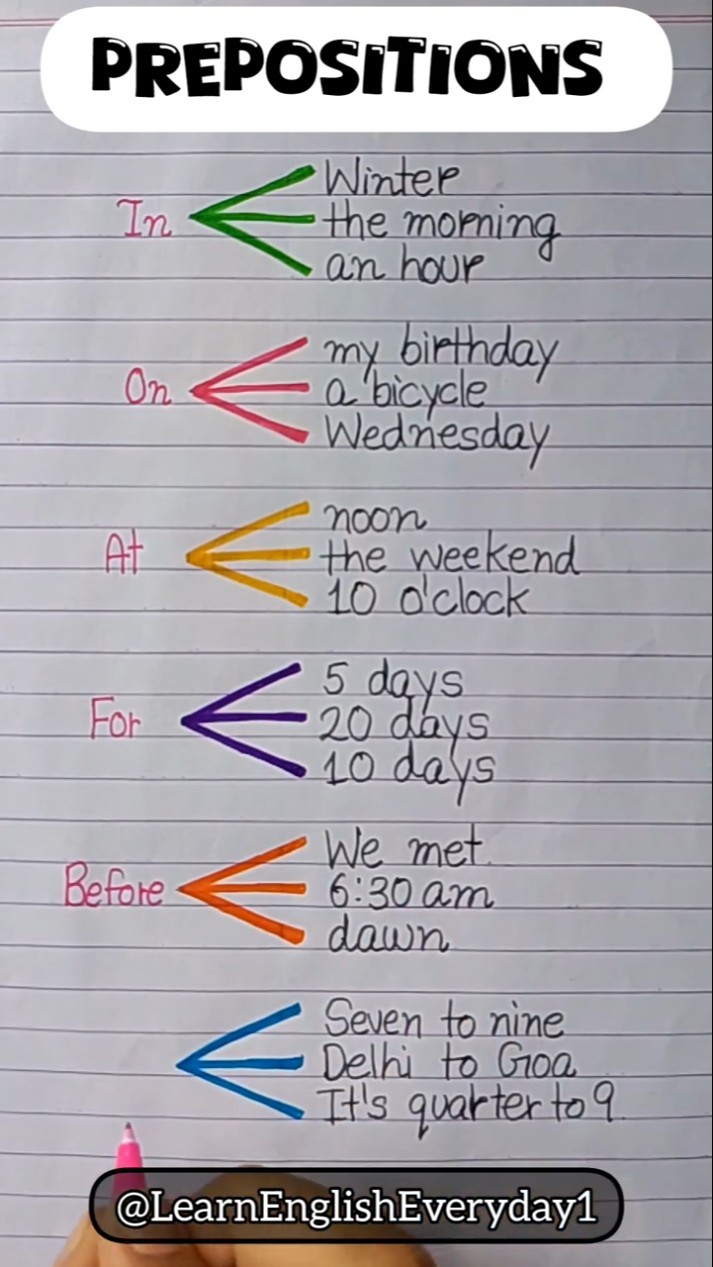 PREPOSITIONS
Winter
In the morning
an hour
my birthday
On a bicycle
Wednesday
noon
At the weekend
10 o'clock
5 days
For 20 days
10 days
We met.
Before 6:30 am
dawn
Seven to nine
Delhi to Goa
It's quarter to 9.
@LearnEnglishEveryday1